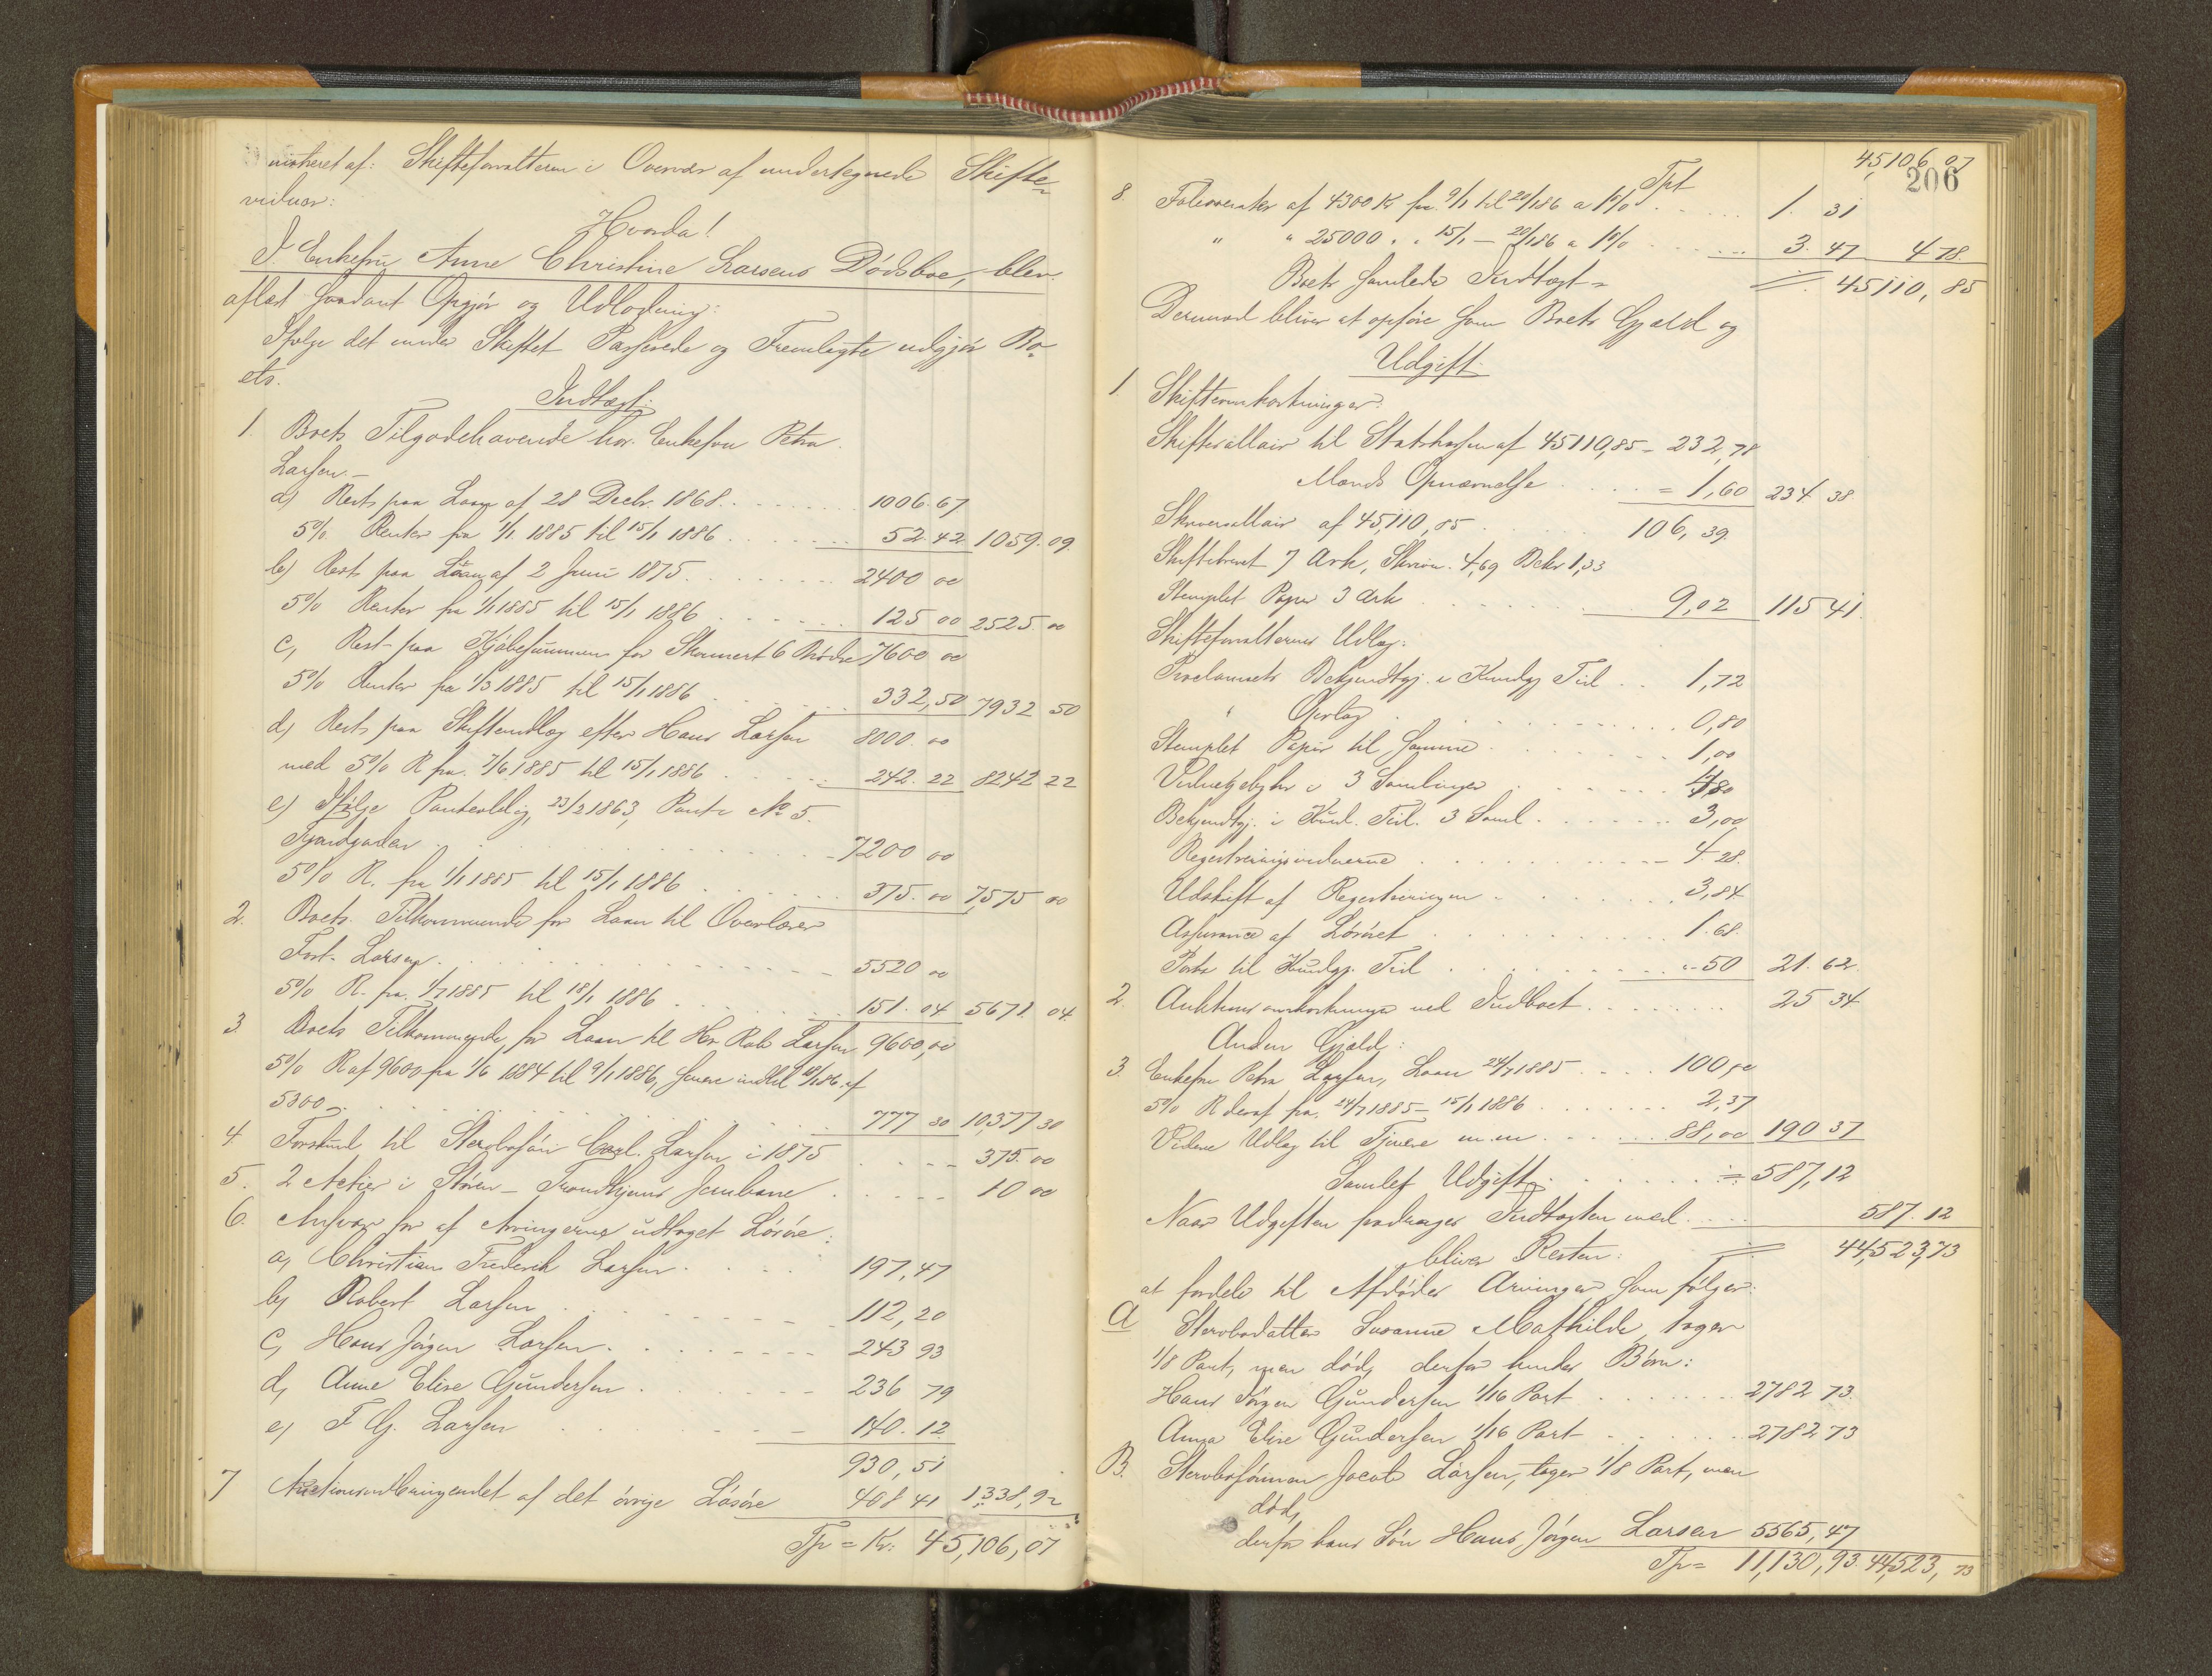 nistreret af: Skifteforvalteren i Overvær af undertegnede Skifte-
vidner:
Hvorda!
I. Enkefru Anne Christine Larsens Dødsboe, blev
aflæst saadant Opgjør og Udlodning:
Ifølge det under Skiftet Passerede og Fremlagte udgjør Bo-
ets.
Indtægt:
1. Boets Tilgodehavende hos Enkefru Petra
Larsen.
a) Rest paa Laan af 28 Decbr. 1868. 1006.67
5% Renter fra 1/1 1885 til 15/1 1886 52.42 1059.09.
b) Rest paa Laan af 2 Juni 1875. 2400 00
5% Renter fra 1/1 1885 til 15/1 1886 125 00 2525 00
c, Rest paa Kjøbesummen for Skonnert 6 Brødre 7600 00
5% Renter fra 1/3 1885 til 15/1 1886 332,50 7932 50
d) Rest paa Skifteudlæg efter Hans Larsen 8000.00
med 5% R fra 7/6 1885 til 15/1 1886 242.22 8242 22
e) Ifølge Panteobligt. 23/2 1863, Pant i No 5.
Fjordgaden 7200 00
5% R. fra 1/1 1885 til 15/1 1886 375.00 7,575 00
2. Boets Tilkommende for Laan til Overlærer
Fort. Larsen. 5520 00
5% R. fra 1/7 1885 til 18/1 1886 151.04 5671 04.
3 Boets Tilkommende for Laan til Hr Rob Larsen 9600,00
5% R af 9600 fra 1/6 1884 til 9/1 1886, senere indtil 18/1 86 af
5300 777 30 10,377 30
4. Forskud til Stervbosøn Carl Larsen i 1875 375.00
5. 2 Actier i Støren-Trondhjems Jernbane 10 00
6. Ansvar for af Arvingerne udtaget Løsøre:
a, Christian Frederik Larsen 197,47
b, Robert Larsen 112,20
c, Hans Jørgen Larsen. 243 93
d, Anne Elise Gundersen 236 79
e, F G. Larsen 140.12
930,51
7 Auctionsudbringendet af det øvrige Løsøre 408 41 1338,92
Tpr = Kr: 45,106,07
206
Tpt 45,106,07
8. Foliorenter af 4300 Kr fra 9/1 til 20/1 86 a 1% 1.31
" " 25000 " " 15/1 - 20/1 86 a 1% 3.47 4 78.
Boets samlede Indtægt = 45110,85
Derimod bliver at opføre som Boets Gjæld og
Udgift.
1 Skifteomkostninger:
Skiftesallair til Statskassen af 45110,85 - 232,78
Mænds Opnævnelse = 1,60 234 38
Skriversallair af 45,110,85 106,39.
Skiftebrevet 7 Ark, Skriv. 4,69 Bekr 1,33
Stemplet Papir 3 Ark 9,02 115 41.
Skifteforvalterens Udlæg:
Proclamaets Bekjendtgj. i Kundgj Tid 1,72
" Oplæg 0,80
Stemplet Papir til samme 1,00
Vidnegebyhr i 3 Samlinger 4,80
Bekjendtgj. i Kund. Tid. 3 Saml. 3,00
Registreringsvidnerne 4.28.
Udskrift af Registreringen 3,84
Assurance af Løsøret 1.68.
Porto til Kundgj. Tid " 50 21.62
2. Auktionsomkostninger ved Indboet 25 34
Anden Gjæld:
3. Enkefru Petra Larsen, Laan 24/7 1885 100,00
5% R deraf fra 24/7 1885 - 15/1 1886 2,37
Videre Udlæg til Tjenere m.m. 88,00 190 37
Samlet Udgift = 587,12
Naar Udgiften fradrages Indtægten med 587.12
bliver Resten: = 44,523,73
at fordele til Afdødes Arvinger som følger:
A Stervbodatter Susanne Mathilde, tager
1/8 Part, men død, derfor hendes Børn:
Hans Jørgen Gundersen 1/16 Part 2782 73.
Anna Elise Gundersen 1/16 Part 2782 73
B. Stervbosønnen Jacob Larsen, tager 1/8 Part, men
død,
derfor hans Søn Hans Jørgen Larsen 5565,47
Tpr = 11,130,93. 44,523,73